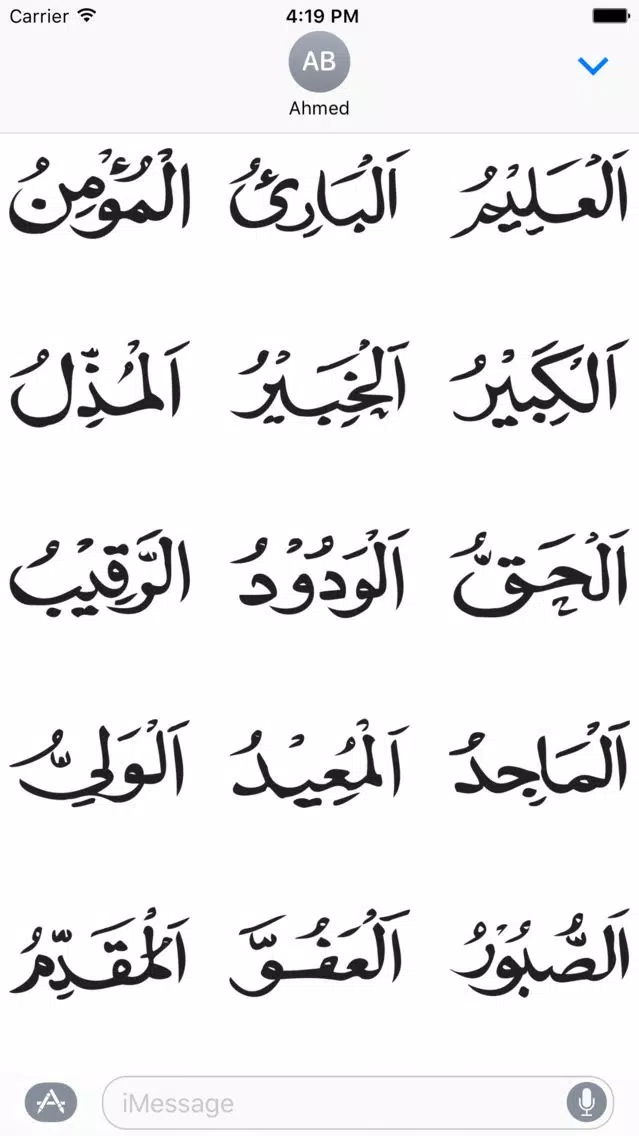 Carrier 4:19 PM
AB
Ahmed
اَلْعَلِيْمُ اَلْبَارِئُ الْمُؤْمِنُ
اَلْكَبِيْرُ اَلْخَبِيْرُ اَلْمُذِّلُ
اَلْحَقُّ اَلْوَدُوْدُ الرَّقِيْبُ
اَلْمَاجِدُ اَلْمُعِيْدُ اَلْوَلِيُّ
اَلصُّبُوْرُ اَلْعَفُوَّ اَلْمُقَدِّمُ
iMessage